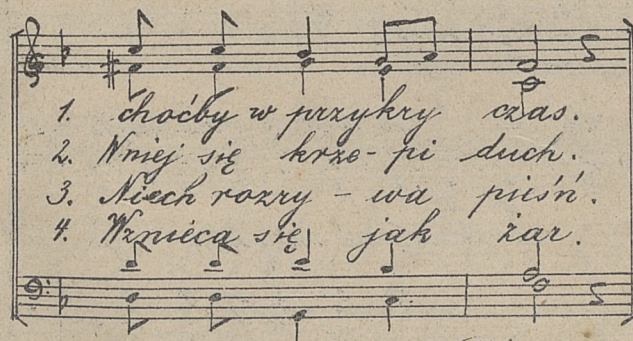 1. choćby w przykry czas.
2. W niej się krze-pi duch.
3. Niech rozry-wa pieśń.
4. Wznieca się jak żar.